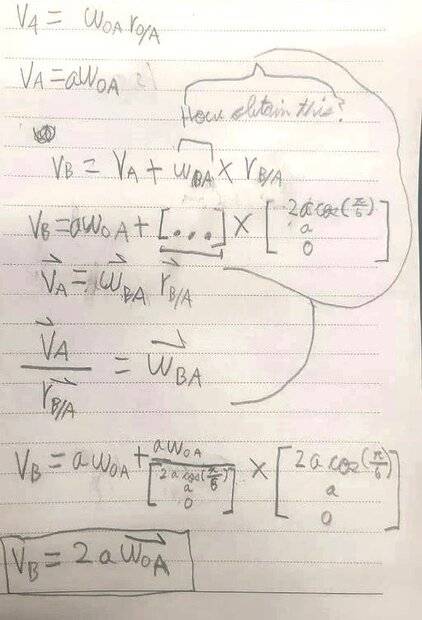 V_A = ω_OA r_O/A
V_A = aω_OA
How obtain this?
V_B = V_A + ω_BA × r_B/A
V_B = aω_OA + [...] × [2a cos(π/6) a 0]
V⃗_A = ω⃗_BA r⃗_B/A
V⃗_A / r⃗_B/A = ω⃗_BA
V_B = aω_OA + aω_OA / [2a cos(π/6) a 0] × [2a cos(π/6) a 0]
V_B = 2a ω⃗_OA